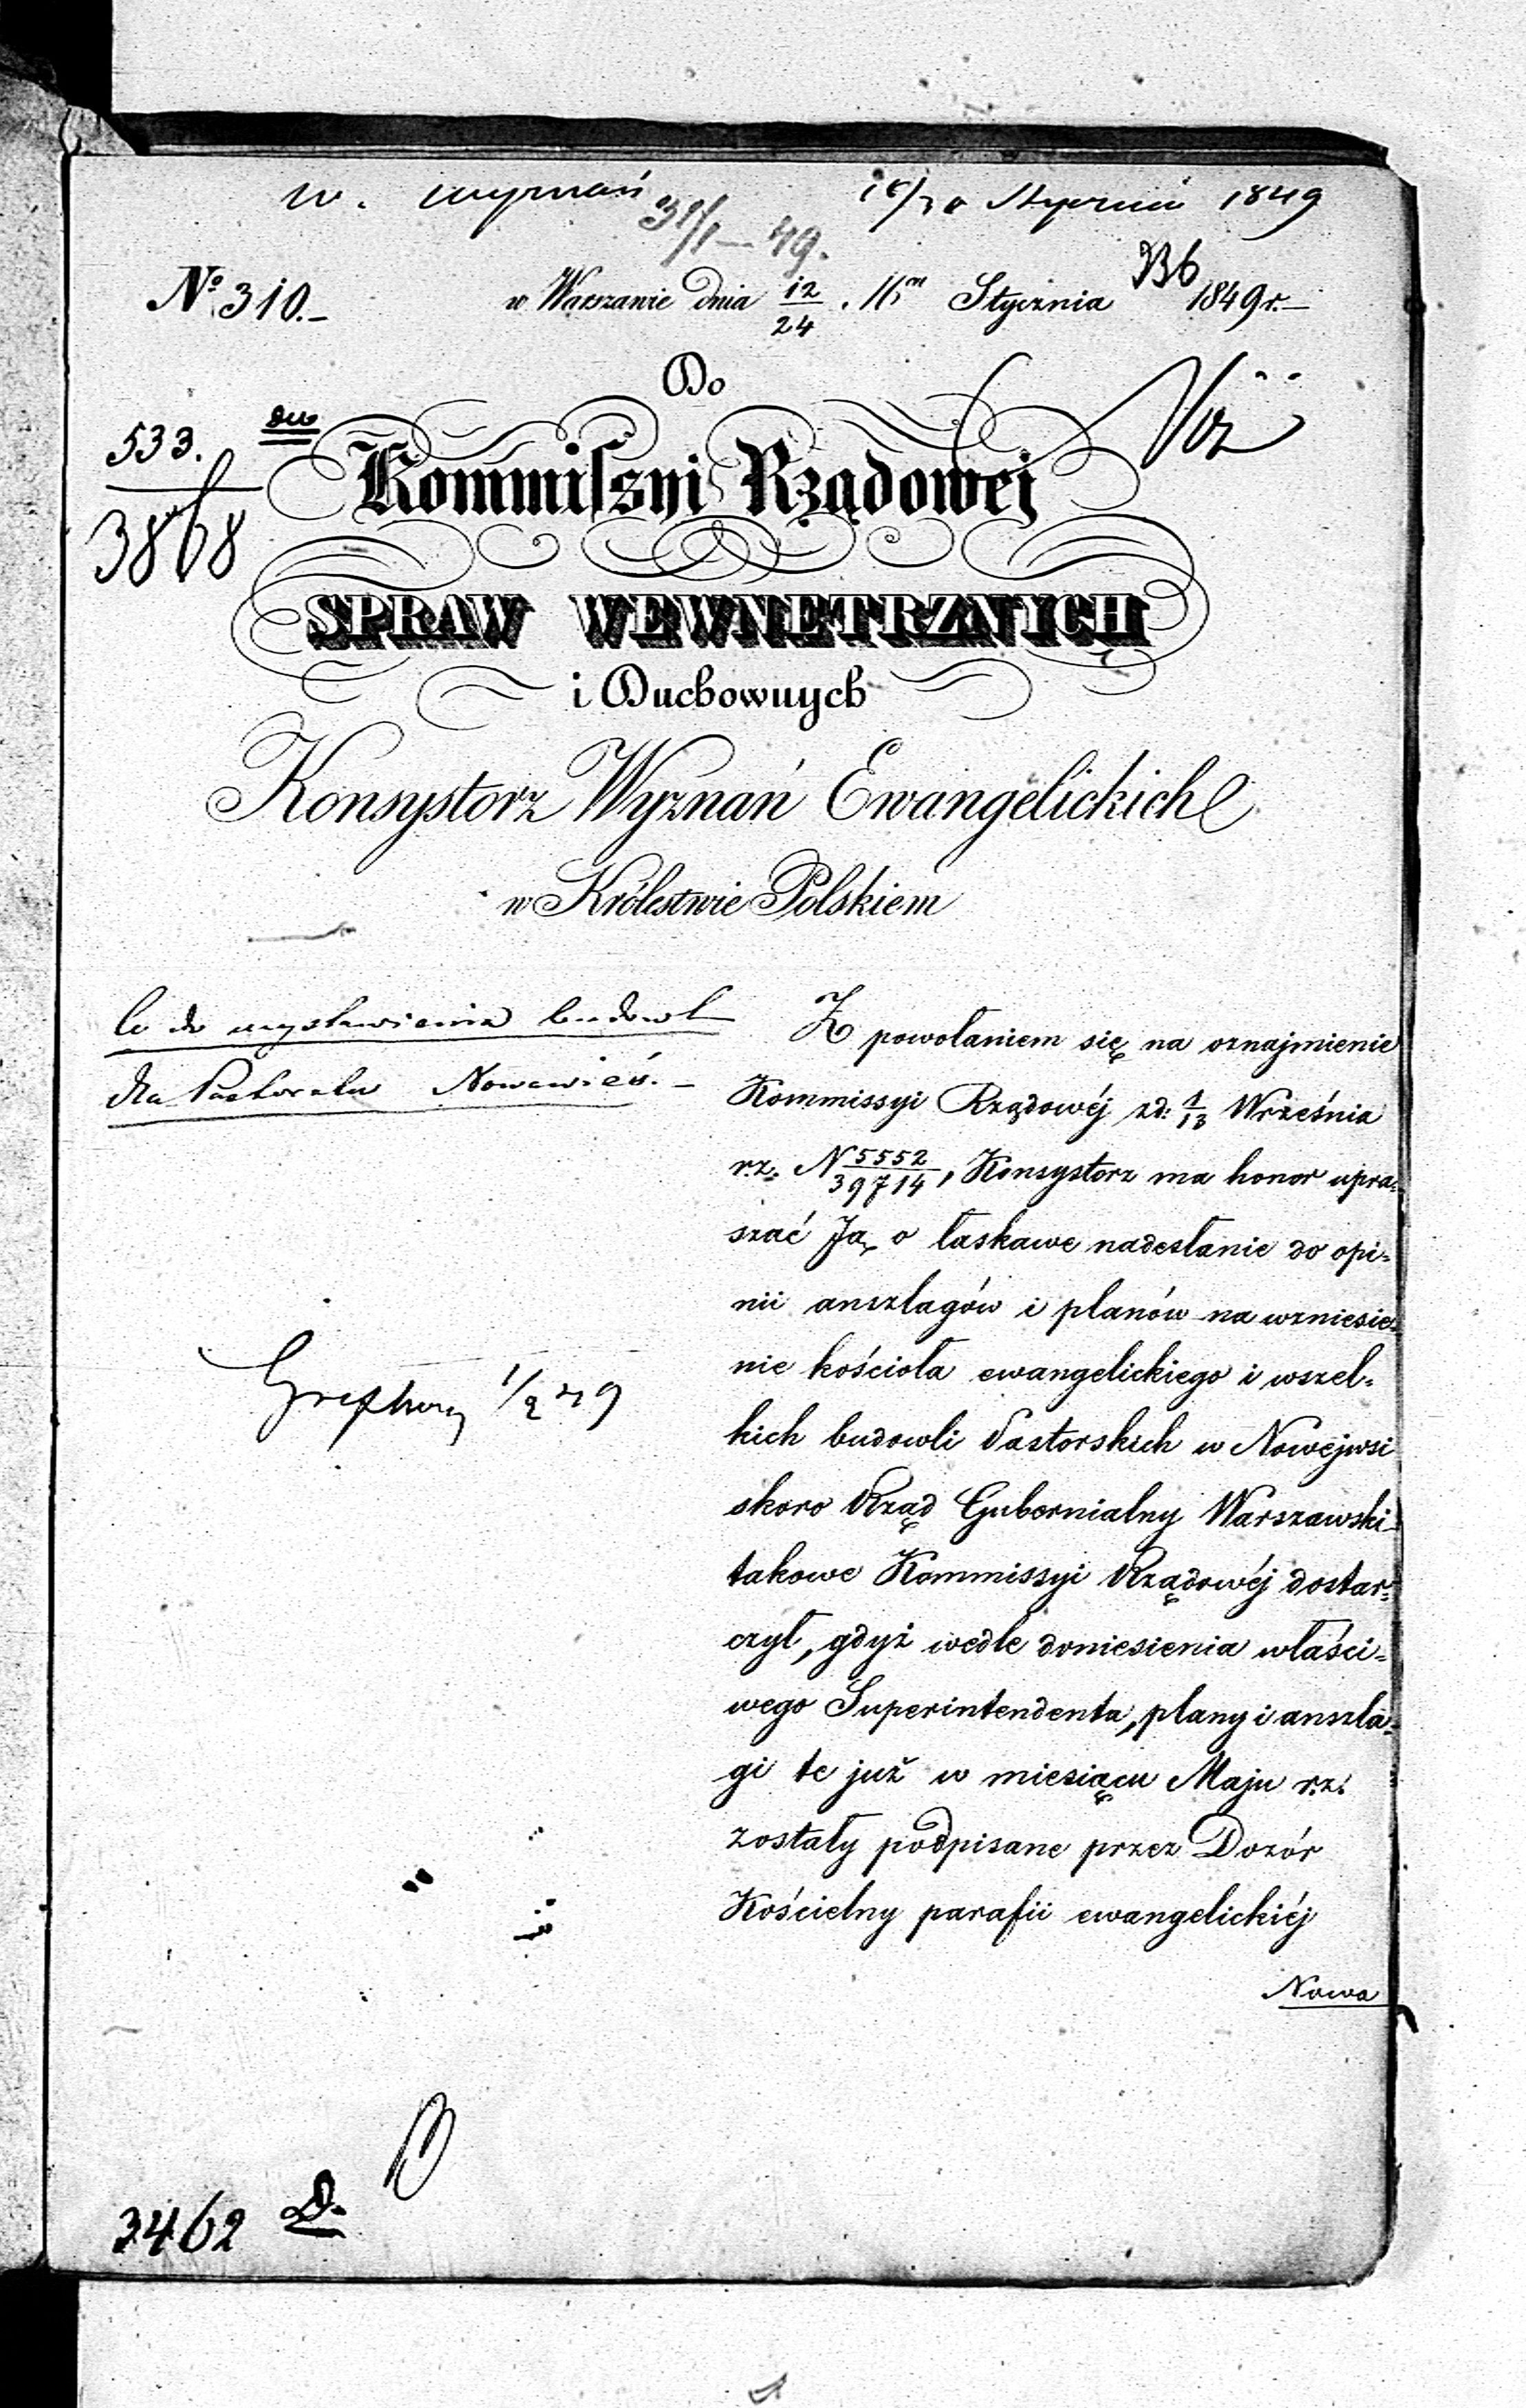 w. wyznań 18/30 Stycznia 1849
31/1 – 49.
336
№ 310.–
w Warszawie dnia 12/24 Stycznia 1849 r.–
Do
533.
3868
Kommissyi Rządowej
SPRAW WEWNĘTRZNYCH
i Duchownych
Konsystorz Wyznań Ewangelickich
w Królestwie Polskiem
Co do wystawienia budowl
dla Pastoratu Nowawieś.–
Z powołaniem się na oznajmienie
Kommissyi Rządowéj z d: 1/13 Września
r.z. N 5552/39714, Konsystorz ma honor upra=
szać Ją o łaskawe nadesłanie do opi=
nii anszlagów i planów na wzniesie=
nie kościoła ewangelickiego i wszel=
kich budowli Pastorskich w Nowejwsi
skoro Rząd Gubernialny Warszawski
takowe Kommissyi Rządowéj dostar=
czył, gdyż wedle doniesienia właści=
wego Superintendenta, plany i anszla=
gi te już w miesiącu Maju r.z.
zostały podpisane przez Dozór
Kościelny parafii ewangelickiéj
Nowa
1/2 49
3462 D.